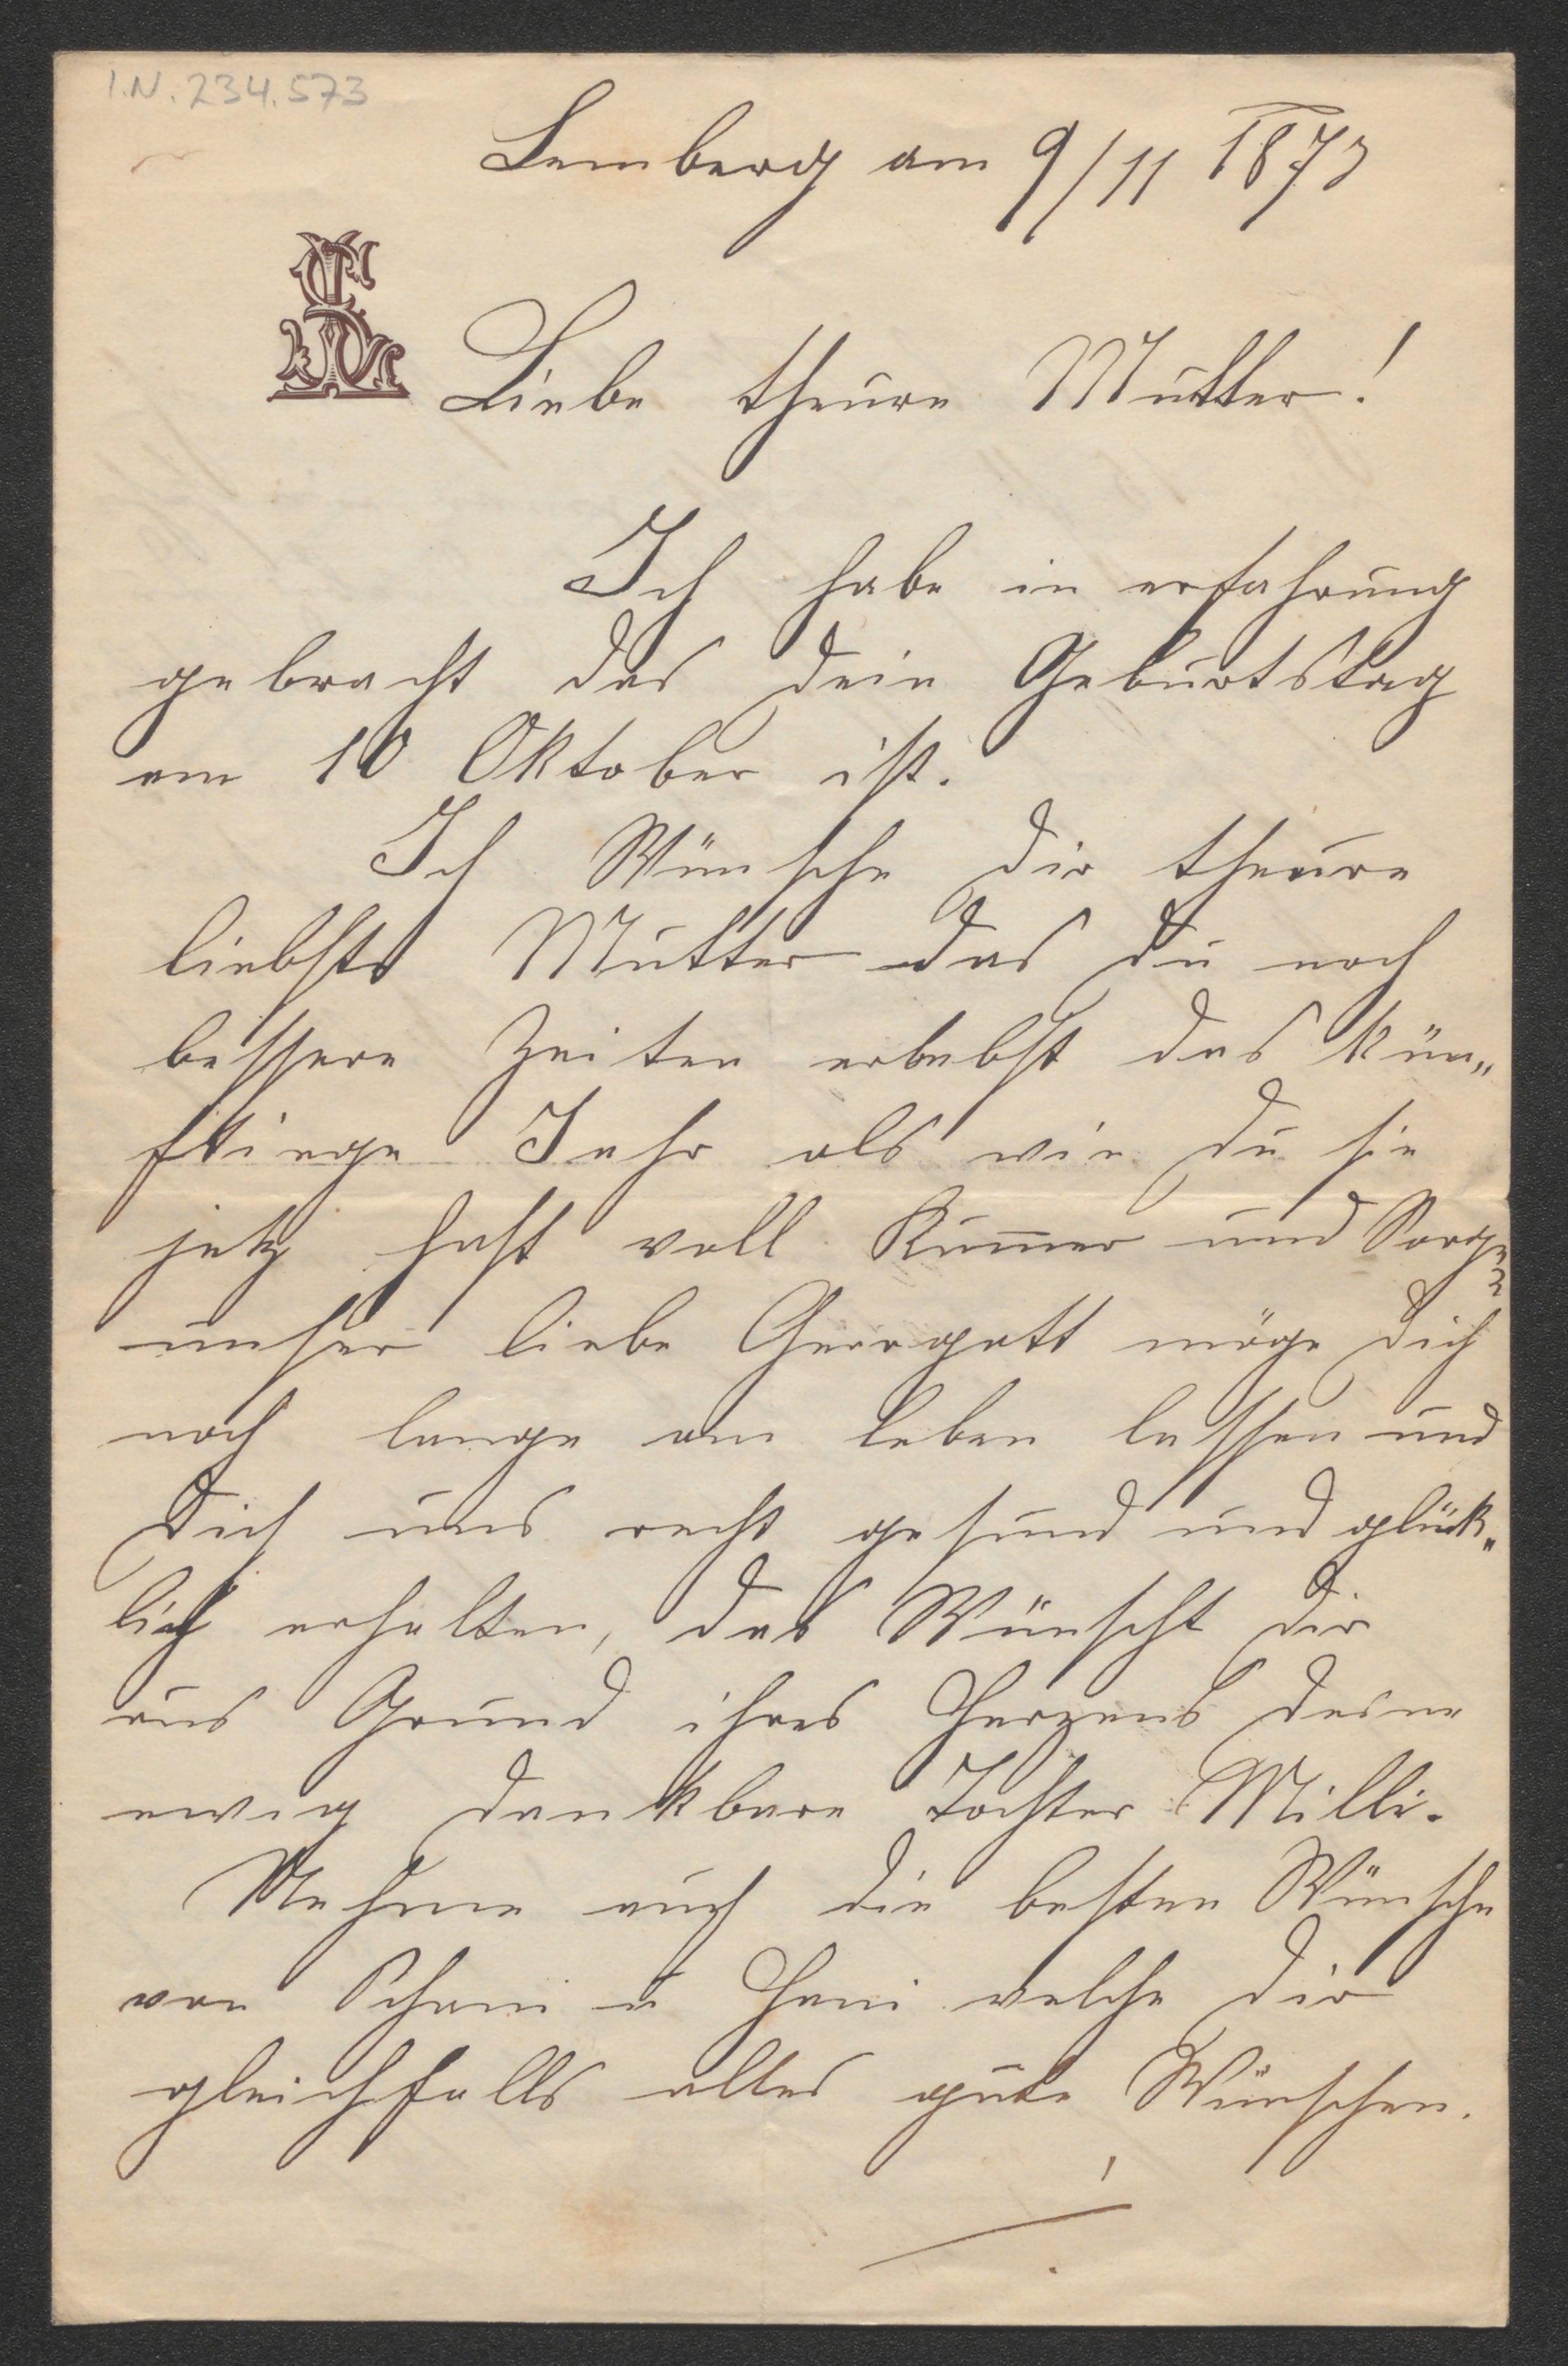 I.N. 234.573
Lemberg am 9/11 1873
Liebe theure Mutter!
Ich habe in erfahrung
gebracht das dein Geburtstag
am 10 Oktober ist.
Ich Wünsche dir theure
liebste Mutter das du noch
bessere Zeiten erlebst das kün„
ftiege Jahr als wie du sie
jetz hast voll Kum̅er und Sorgen
unser liebe Herrgott möge dich
noch lange am leben lassen und
Dich uns recht gesund und glük„
lich erhalten, das Wünscht dir
aus Grund ihres Herzens deine
ewig dankbare Tochter Milli.
Nehme auch die besten Wünsche
von Schani u Hani welche dir
gleichfalls alles gute Wünschen.